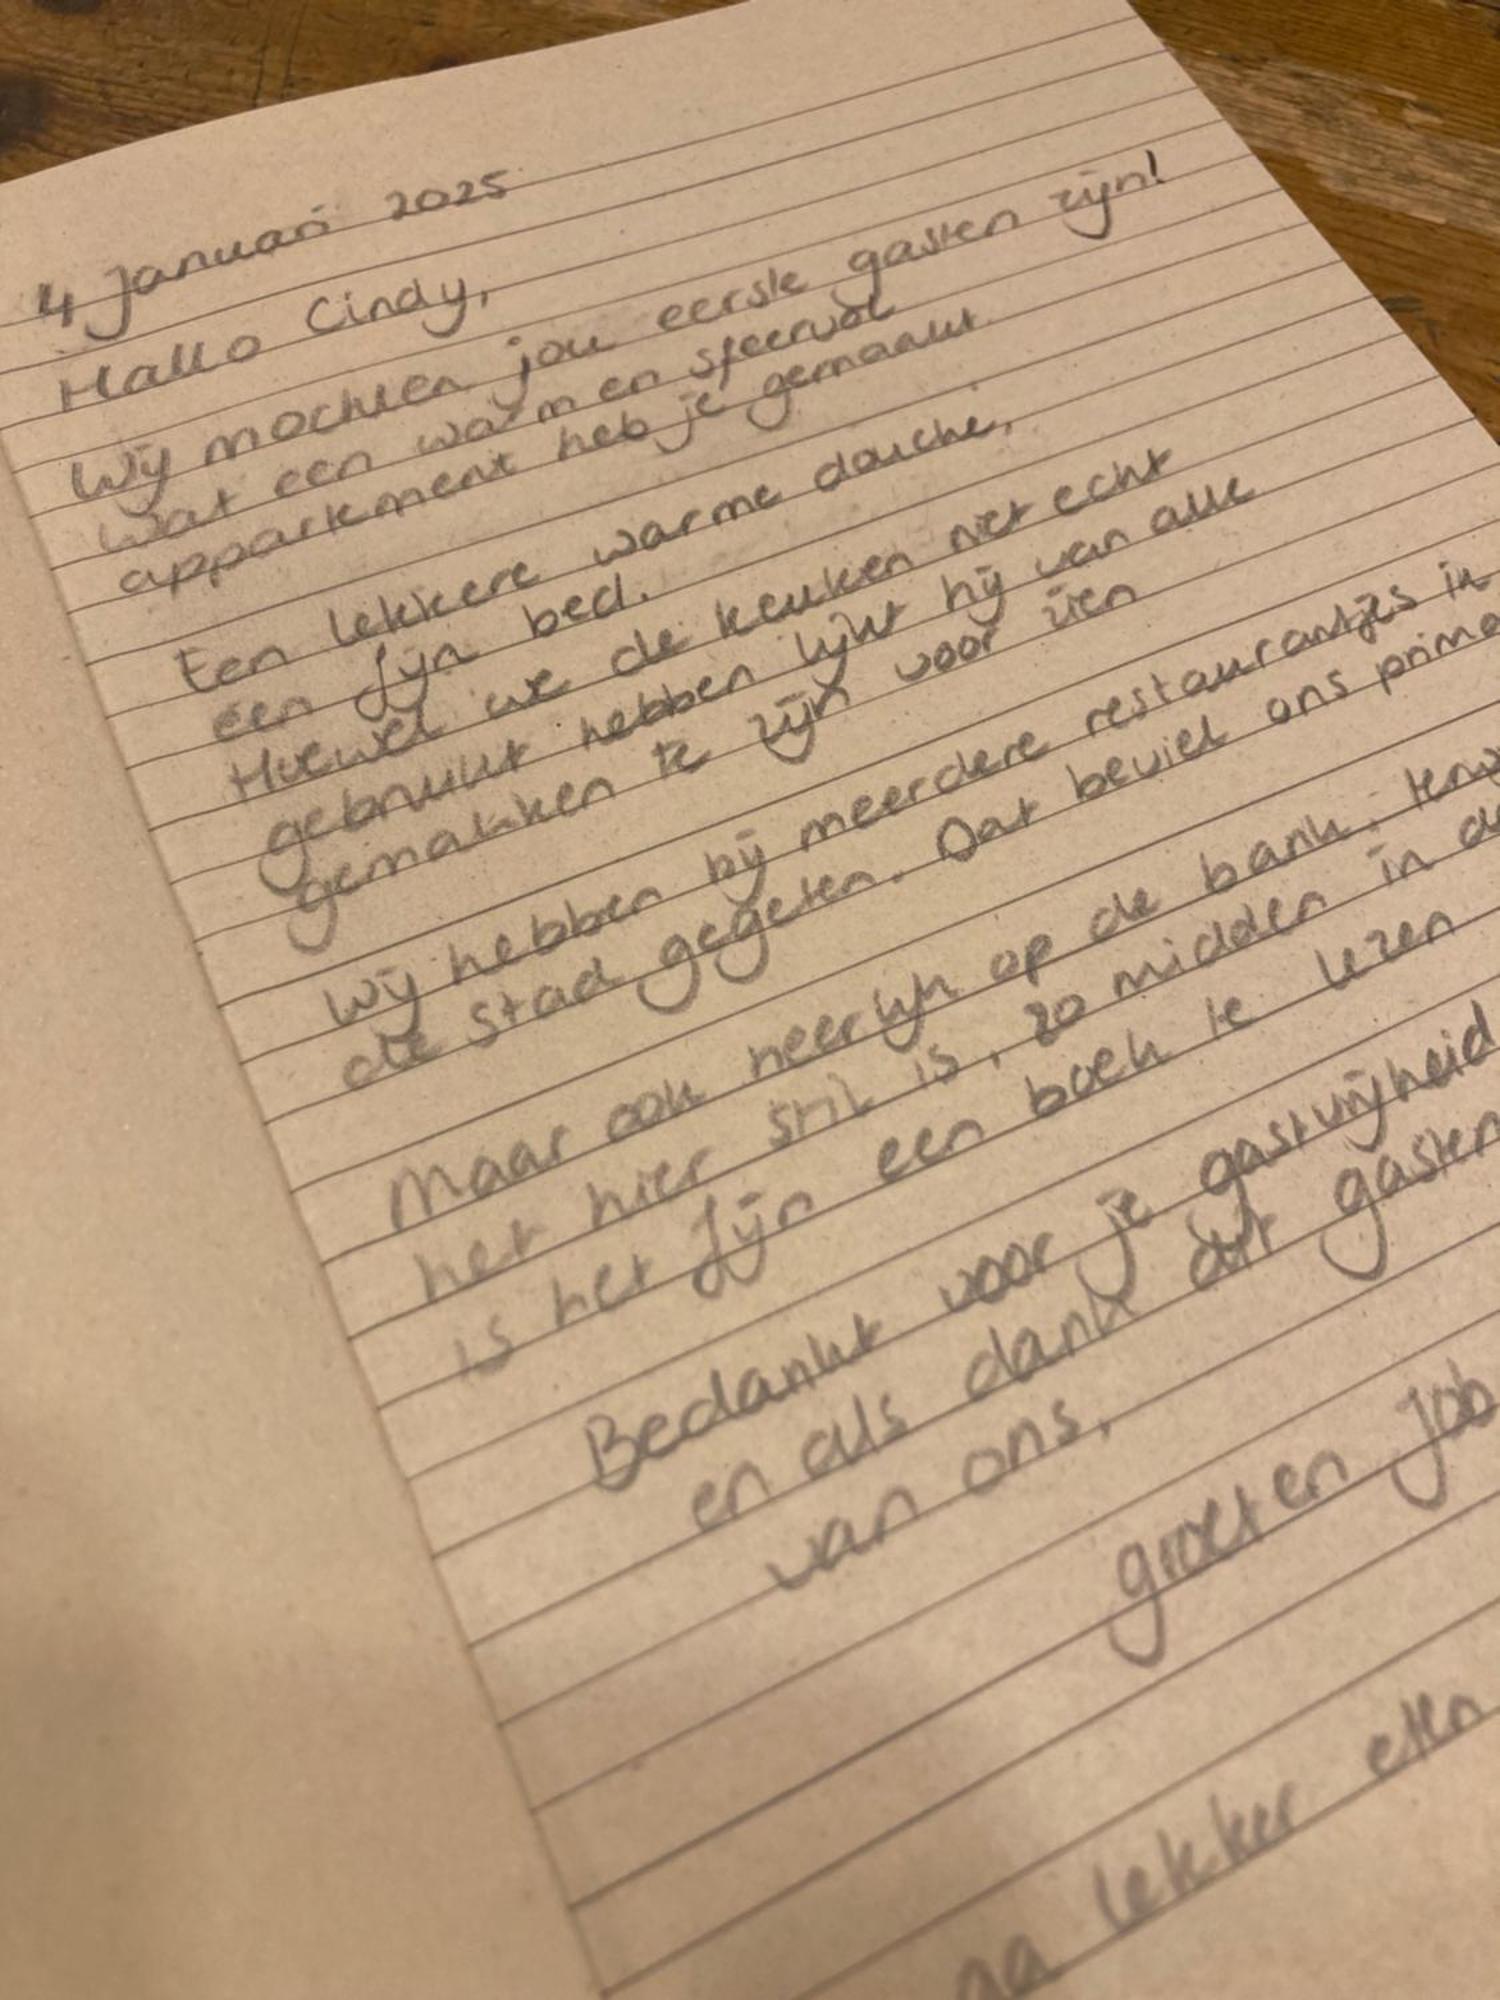 4 Januari 2025
Hallo Cindy,
Wij mochten jou eerste gasten zijn!
Wat een warm en sfeervol
appartement heb je gemaakt.
Een lekkere warme douche,
een fijn bed.
Hoewel we de keuken niet echt
gebruikt hebben lijkt hij van alle
gemakken te zijn voor zien
Wij hebben bij meerdere restaurantjes in
de stad gegeten. Dat beviel ons prima
Maar ook heerlijk op de bank,
het hier stil is, zo midden in de
is het fijn een boek te lezen
Bedankt voor je gastvrijheid
en als dank dit gasten
van ons,
groeten Job
lekker eten